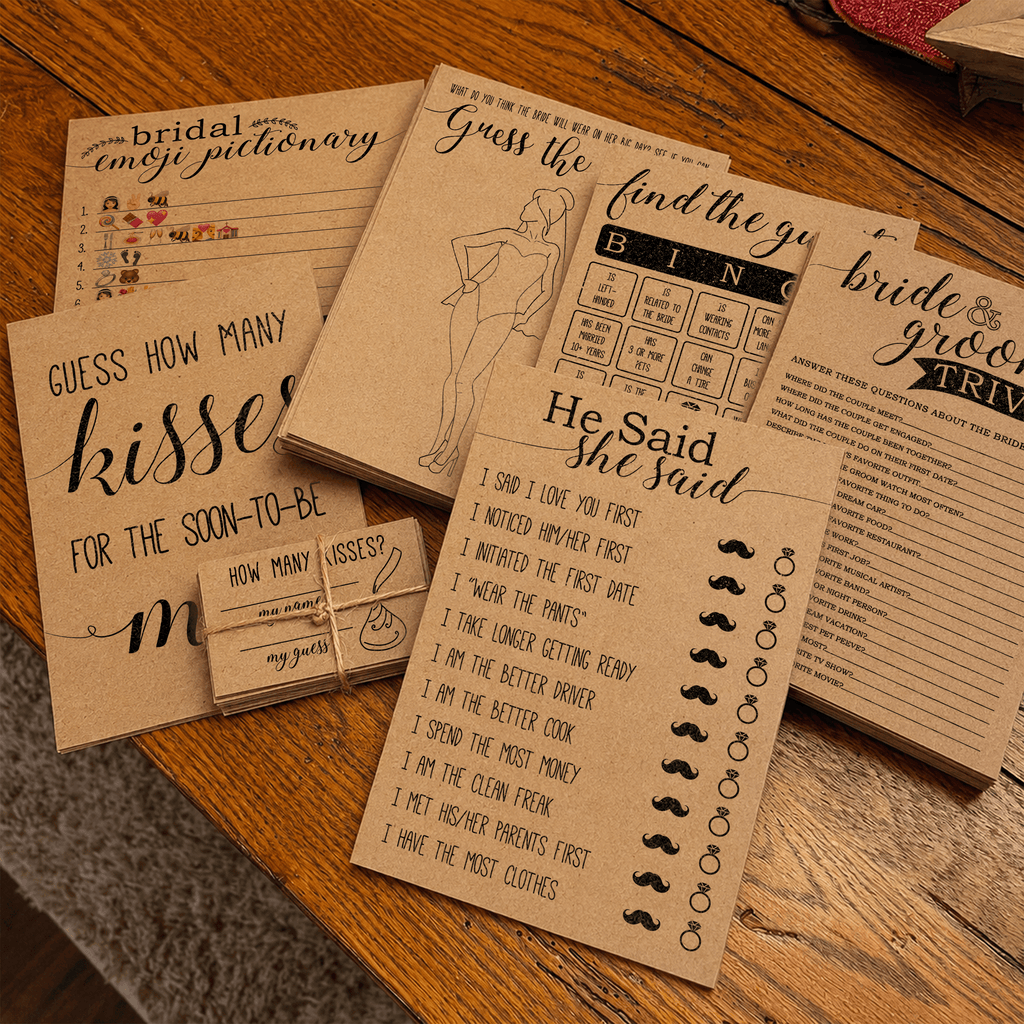 bridal
emoji pictionary
1.
2.
3.
4.
5.
6
WHAT DO YOU THINK THE BRIDE WILL WEAR ON HER BIG DAY? SEE IF YOU CAN
Guess the
find the gu
B I N G
IS LEFT-HANDED
IS RELATED TO THE BRIDE
IS WEARING CONTACTS
CAN MORE LAN
HAS BEEN MARRIED 10+ YEARS
HAS 3 OR MORE PETS
CAN CHANGE A TIRE
IS
IS THE
bride &
groo
TRIV
ANSWER THESE QUESTIONS ABOUT THE BRIDE
WHERE DID THE COUPLE MEET?
WHERE DID THE COUPLE GET ENGAGED?
HOW LONG HAS THE COUPLE BEEN TOGETHER?
WHAT DID THE COUPLE DO ON THEIR FIRST DATE?
DESCRIBE 'S FAVORITE OUTFIT
E GROOM WATCH MOST OFTEN?
FAVORITE THING TO DO?
DREAM CAR?
AVORITE FOOD?
AVORITE RESTAURANT?
E WORK?
FIRST JOB?
VORITE MUSICAL ARTIST?
VORITE BAND?
OR NIGHT PERSON?
VORITE DRINK?
EAM VACATION?
EST PET PEEVE?
MOST?
RITE TV SHOW?
RITE MOVIE?
GUESS HOW MANY
kisses
FOR THE SOON-TO-BE
m
HOW MANY KISSES?
my name
my guess
He Said
she said
I SAID I LOVE YOU FIRST
I NOTICED HIM/HER FIRST
I INITIATED THE FIRST DATE
I "WEAR THE PANTS"
I TAKE LONGER GETTING READY
I AM THE BETTER DRIVER
I AM THE BETTER COOK
I SPEND THE MOST MONEY
I AM THE CLEAN FREAK
I MET HIS/HER PARENTS FIRST
I HAVE THE MOST CLOTHES